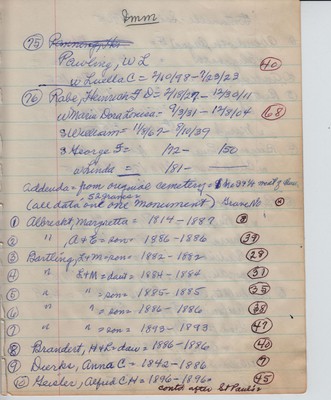 Imm
75 Pawling, W L
w Luella C = 2/10/98 - 7/23/23 40
76 Rabe, Heinrich F D = 2/18/27 - 12/30/11
w Maria Dora Louisa = 9/3/31 - 12/8/04 68
s William = 11/8/67 - 9/10/39
s George F = /72 - /50
w Linda = /81 -
Addenda = from original cemetery = west of
(all data on one monument) Grave No
1 Albrecht, Margretta = 1814 - 1887 8
2 " , A & E = son = 1886 - 1886 37
3 Bartling, L & M = son = 1882 - 1882 28
4 " L & M = daut = 1884 - 1884 31
5 " " = son = 1885 - 1885 35
6 " " = son = 1886 - 1886 38
7 " " = son = 1893 - 1893 47
8 Brandert, H & L = daw = 1886 - 1886 40
9 Dierke, Anna C = 1842 - 1886 9
10 Geisler, Alfred C H = 1896 - 1896 45
conts after St Paul's